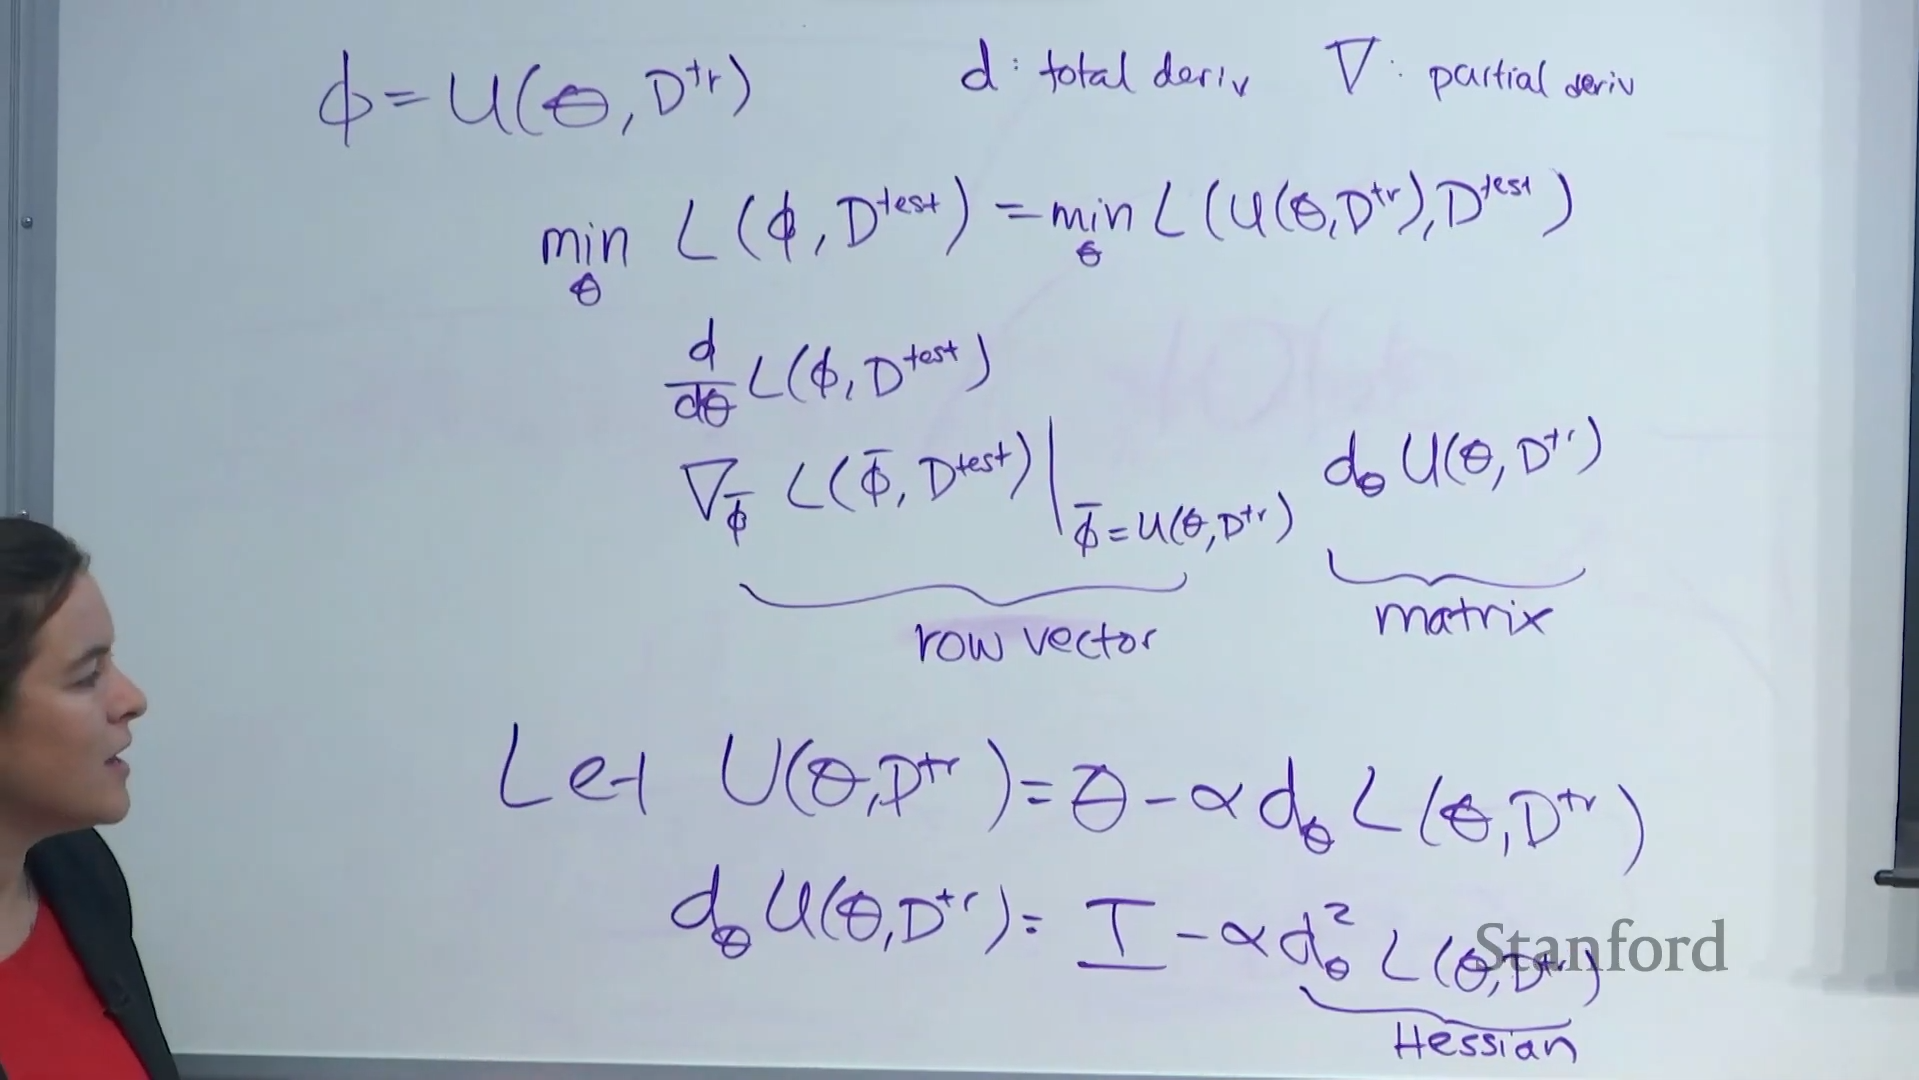 ϕ = U(θ, D^tr) d: total deriv ∇: partial deriv
min_θ L(ϕ, D^test) = min_θ L(U(θ, D^tr), D^test)
d/dθ L(ϕ, D^test)
∇_ϕ̄ L(ϕ̄, D^test) |_ϕ̄ = U(θ, D^tr) d_θ U(θ, D^tr)
row vector matrix
Let U(θ, D^tr) = θ - α d_θ L(θ, D^tr)
d_θ U(θ, D^tr) = I - α d²_θ L(θ, D^tr)
Stanford
Hessian